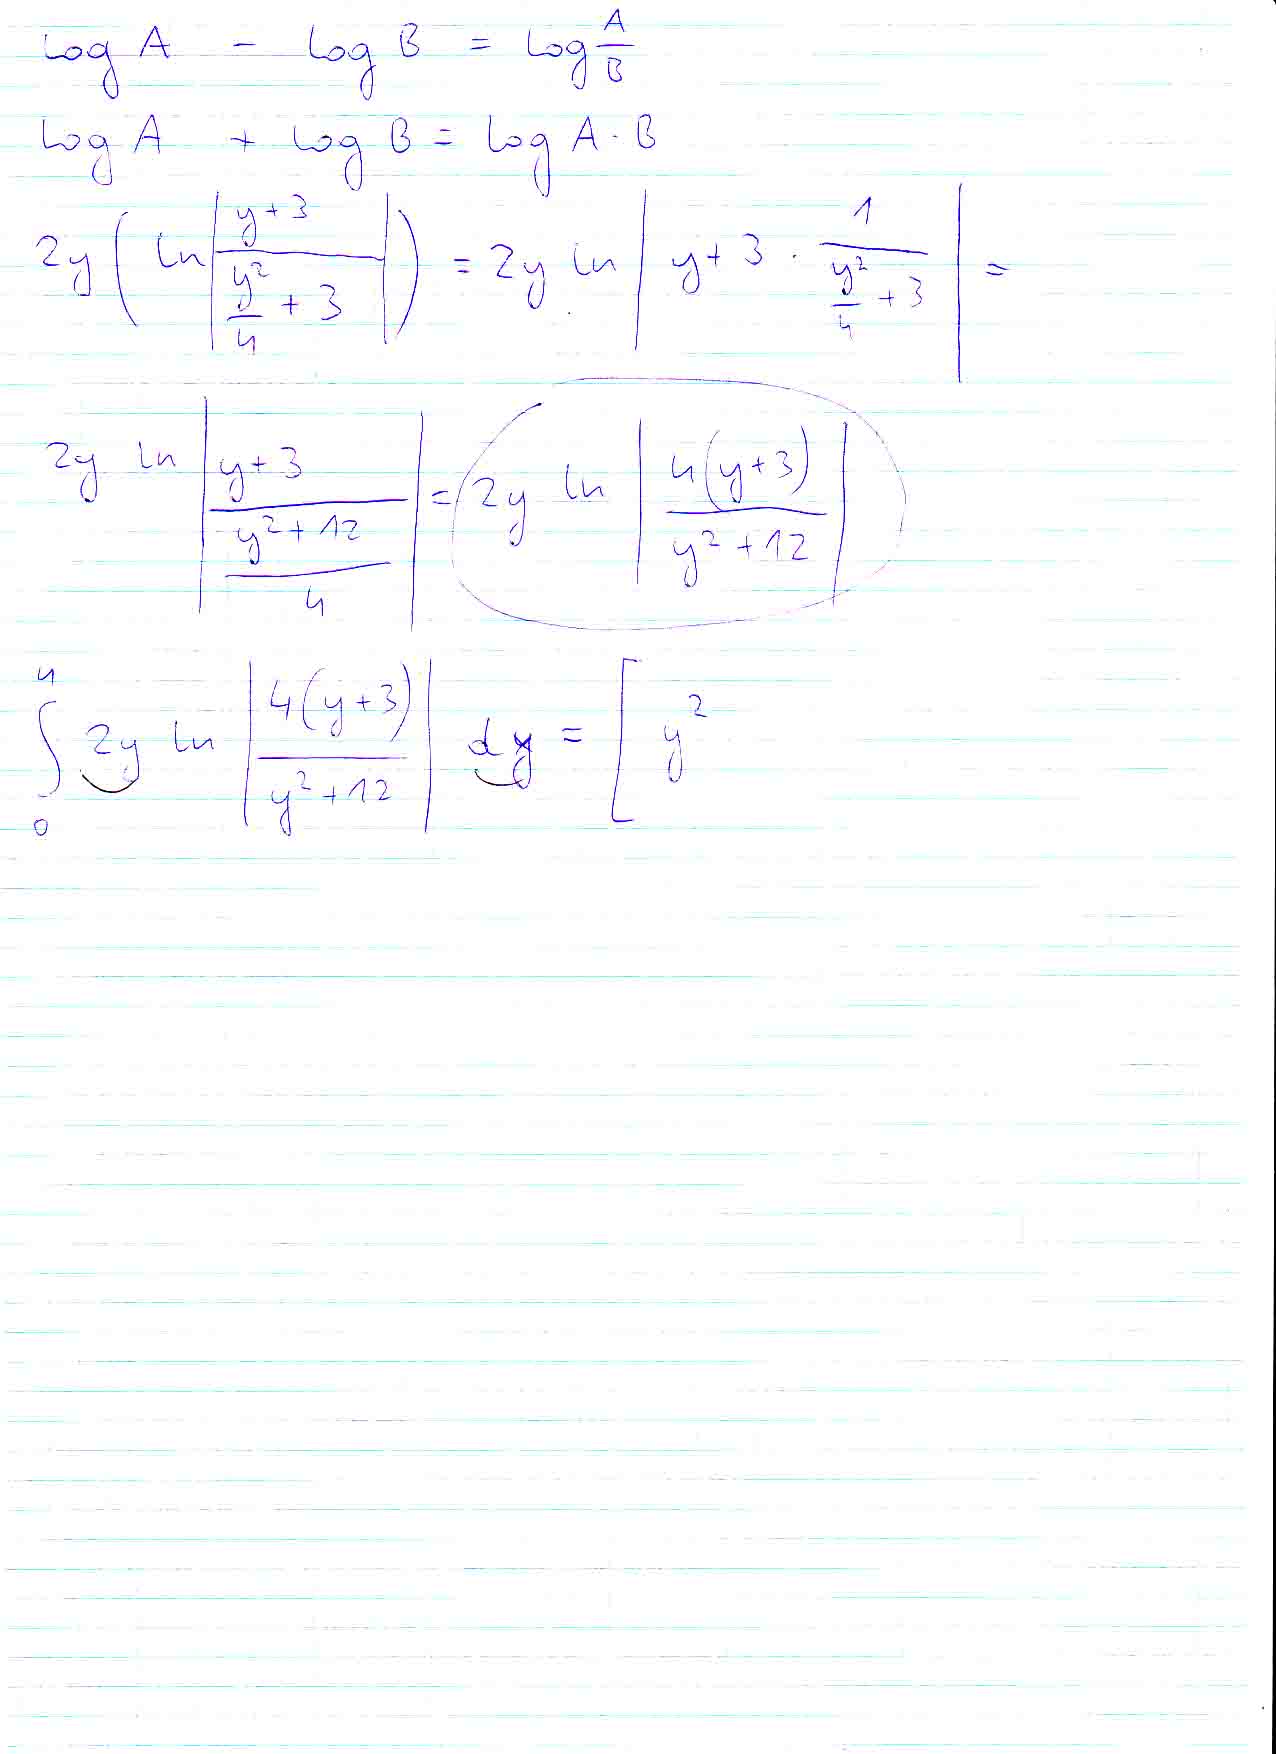 log A - log B = log A/B
log A + log B = log A · B
2y ( ln | (y+3) / (y²/4 + 3) | ) = 2y ln | y+3 · 1 / (y²/4 + 3) | =
2y ln | (y+3) / ((y²+12)/4) | = 2y ln | 4(y+3) / (y²+12) |
∫₀⁴ 2y ln | 4(y+3) / (y²+12) | dy = [ y²